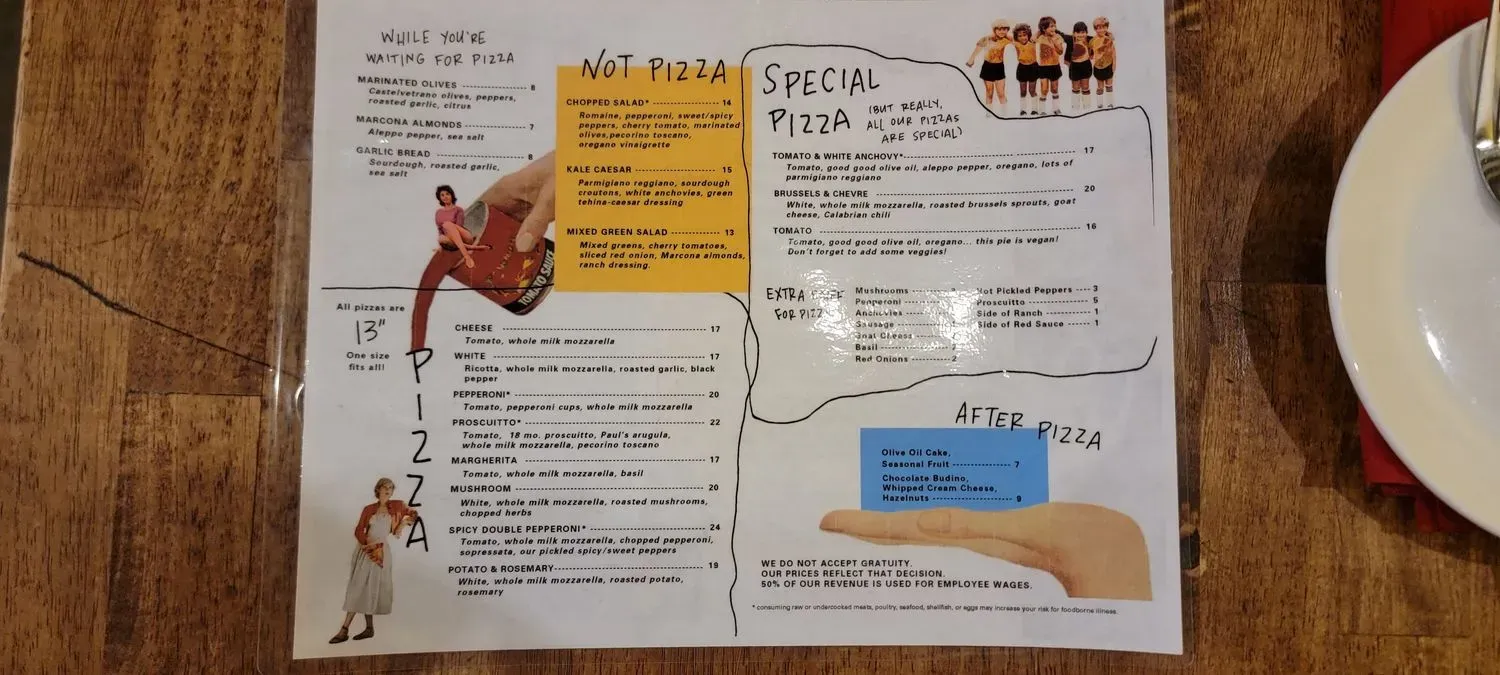 WHILE YOU'RE
WAITING FOR PIZZA
MARINATED OLIVES 8
Castelvetrano olives, peppers,
roasted garlic, citrus
MARCONA ALMONDS 7
Aleppo pepper, sea salt
GARLIC BREAD 8
Sourdough, roasted garlic,
sea salt
TOMATO SAUCE
NOT PIZZA
CHOPPED SALAD* 14
Romaine, pepperoni, sweet/spicy
peppers, cherry tomato, marinated
olives,pecorino toscano,
oregano vinaigrette
KALE CAESAR 15
Parmigiano reggiano, sourdough
croutons, white anchovies, green
tehina-caesar dressing
MIXED GREEN SALAD 13
Mixed greens, cherry tomatoes,
sliced red onion, Marcona almonds,
ranch dressing.
All pizzas are
13"
One size
fits all!
PIZZA
CHEESE 17
Tomato, whole milk mozzarella
WHITE 17
Ricotta, whole milk mozzarella, roasted garlic, black
pepper
PEPPERONI* 20
Tomato, pepperoni cups, whole milk mozzarella
PROSCUITTO* 22
Tomato, 18 mo. proscuitto, Paul's arugula,
whole milk mozzarella, pecorino toscano
MARGHERITA 17
Tomato, whole milk mozzarella, basil
MUSHROOM 20
White, whole milk mozzarella, roasted mushrooms,
chopped herbs
SPICY DOUBLE PEPPERONI* 24
Tomato, whole milk mozzarella, chopped pepperoni,
sopressata, our pickled spicy/sweet peppers
POTATO & ROSEMARY 19
White, whole milk mozzarella, roasted potato,
rosemary
SPECIAL
PIZZA
(BUT REALLY,
ALL OUR PIZZAS
ARE SPECIAL)
TOMATO & WHITE ANCHOVY* 17
Tomato, good good olive oil, aleppo pepper, oregano, lots of
parmigiano reggiano
BRUSSELS & CHEVRE 20
White, whole milk mozzarella, roasted brussels sprouts, goat
cheese, Calabrian chili
TOMATO 16
Tomato, good good olive oil, oregano... this pie is vegan!
Don't forget to add some veggies!
EXTRA
FOR PIZZA
Mushrooms
Pepperoni
Anchovies
Sausage
Goat Cheese
Basil
Red Onions 2
Hot Pickled Peppers 3
Proscuitto 5
Side of Ranch 1
Side of Red Sauce 1
AFTER PIZZA
Olive Oil Cake,
Seasonal Fruit 7
Chocolate Budino,
Whipped Cream Cheese,
Hazelnuts 9
WE DO NOT ACCEPT GRATUITY.
OUR PRICES REFLECT THAT DECISION.
50% OF OUR REVENUE IS USED FOR EMPLOYEE WAGES.
* consuming raw or undercooked meats, poultry, seafood, shellfish, or eggs may increase your risk for foodborne illness.